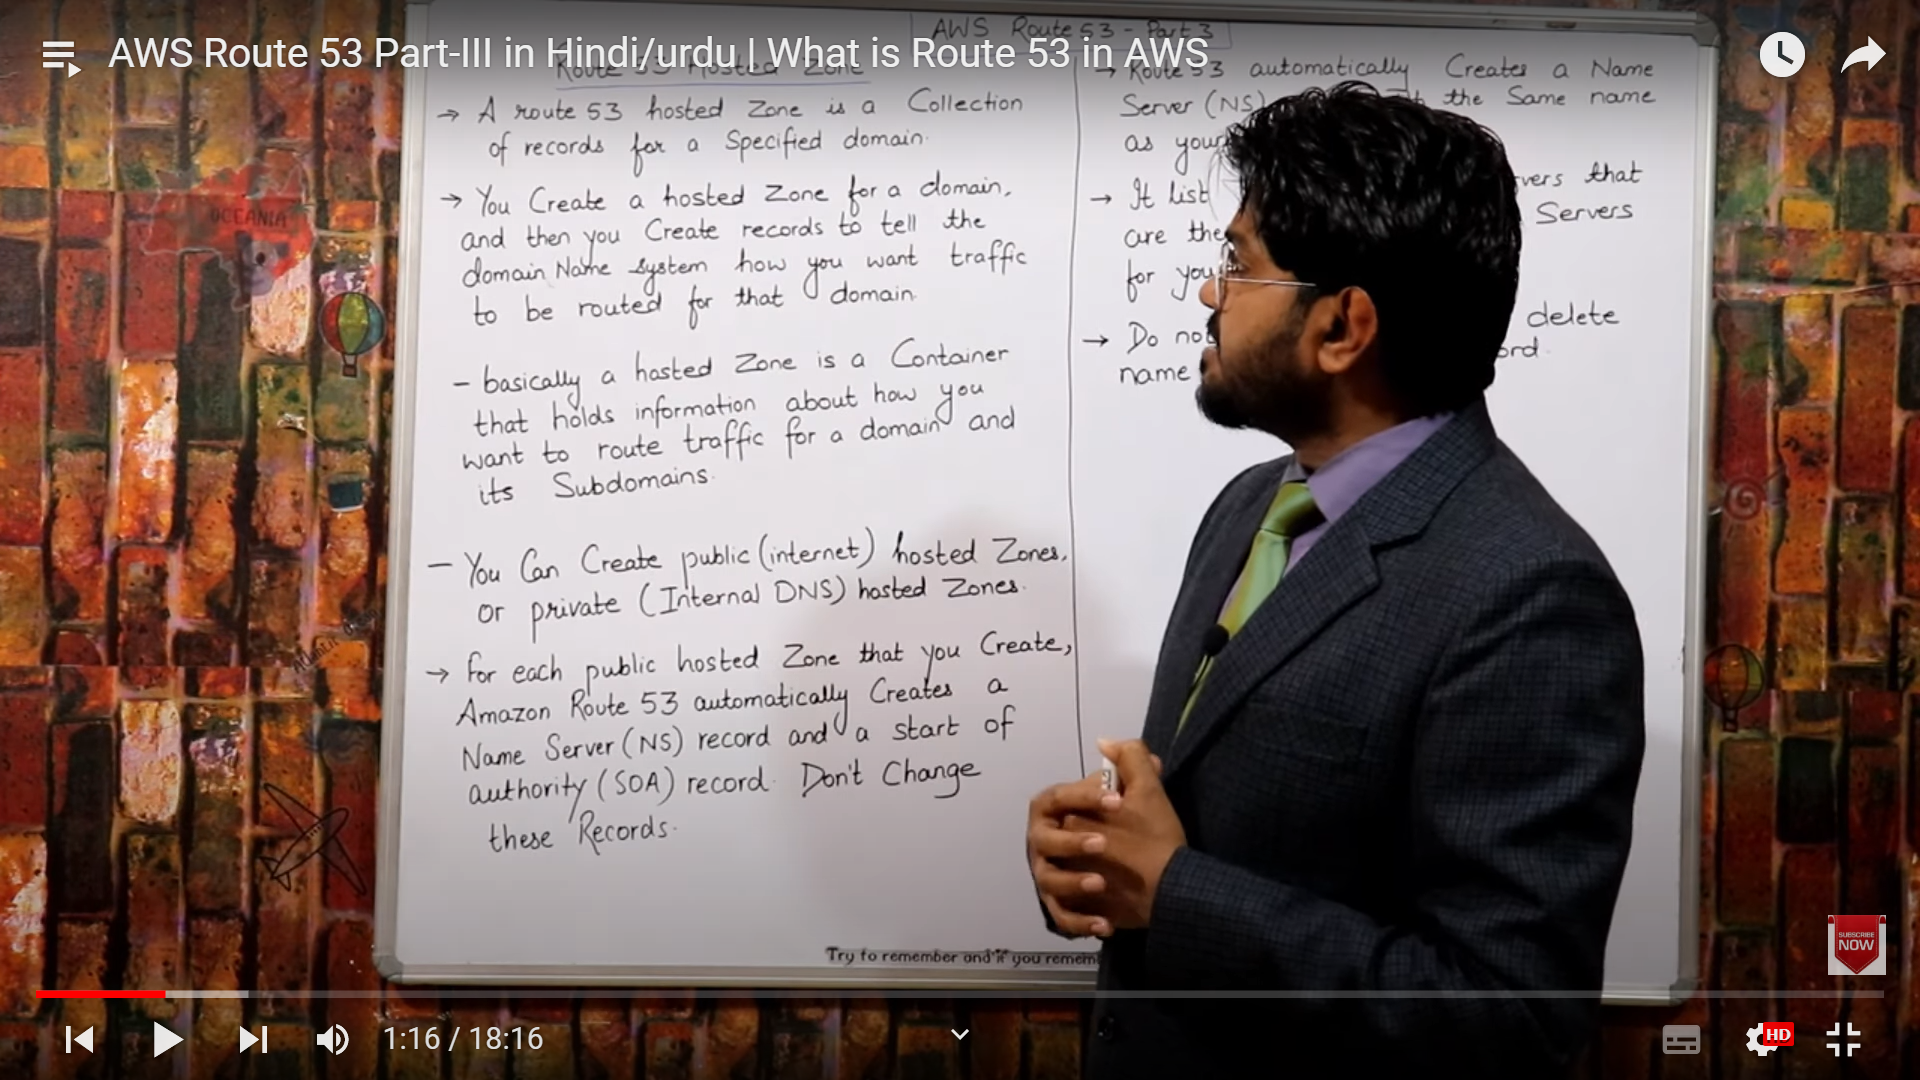 AWS Route 53 Part-III in Hindi/urdu | What is Route 53 in AWS
AWS Route 53 - Part 3
Route 53 Hosted Zone
→ A route 53 hosted Zone is a Collection
of records for a Specified domain.
→ You Create a hosted Zone for a domain,
and then you Create records to tell the
domain Name system how you want traffic
to be routed for that domain.
- basically a hosted Zone is a Container
that holds information about how you
want to route traffic for a domain and
its Subdomains.
- You Can Create public (internet) hosted Zones,
or private (Internal DNS) hosted Zones.
→ For each public hosted Zone that you Create,
Amazon Route 53 automatically Creates a
Name Server (NS) record and a start of
authority (SOA) record. Don't Change
these Records.
→ Route 53 automatically Creates a Name
Server (NS) the Same name
as your
→ It list that
are the Servers
for you
→ Do not delete
name
Try to remember and if you
OCEANIA
SUBSCRIBE
NOW
1:16 / 18:16
HD